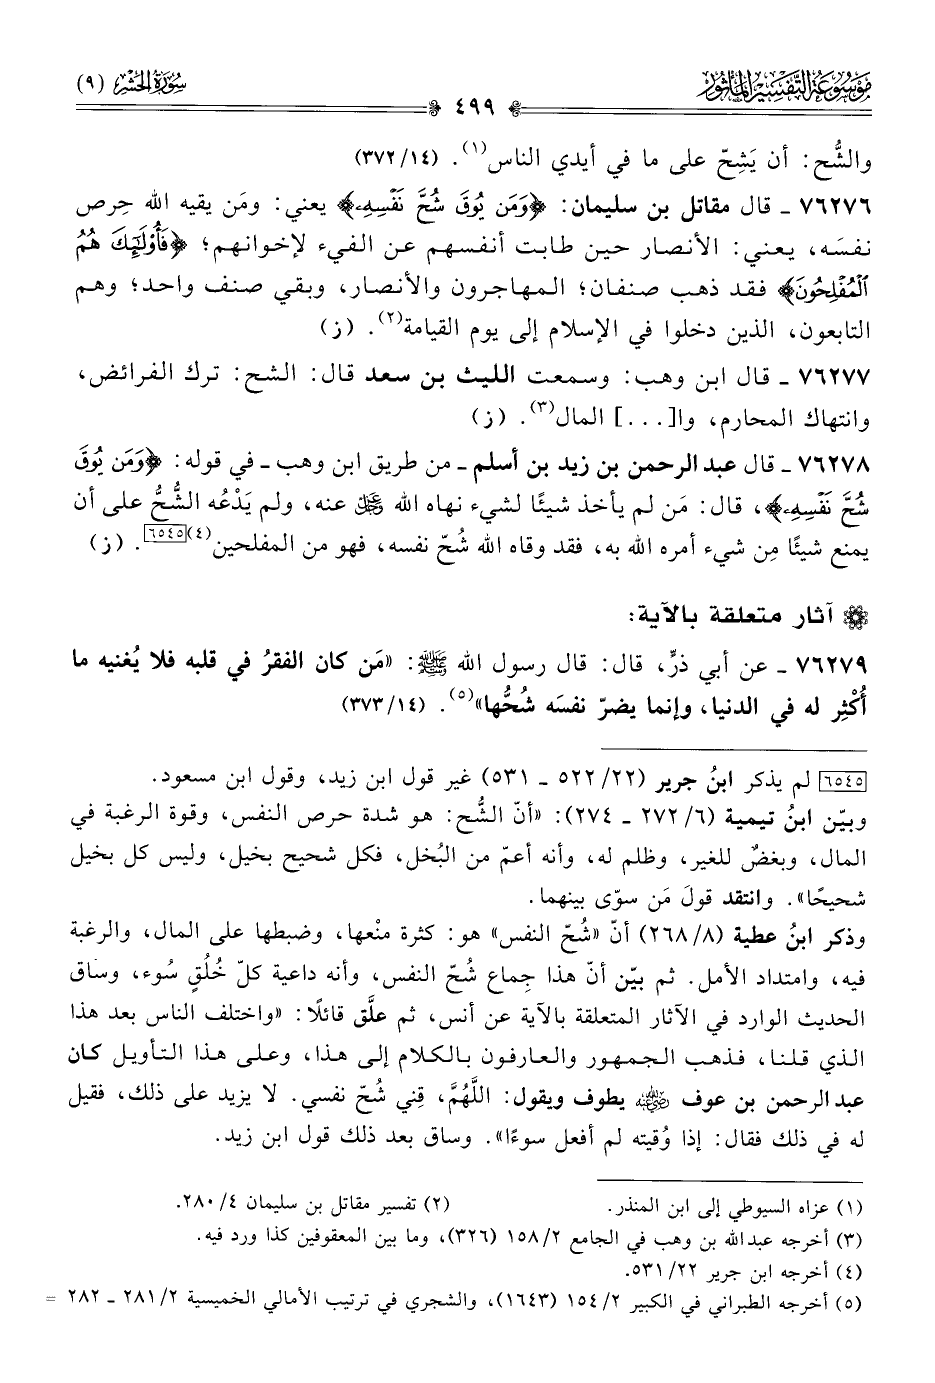 مَوْسُوعَة التَّفْسِير المَأْثُور
سُورَةُ الحَشْرِ (٩)
٤٩٩
والشُّح: أن يَشِحّ على ما في أيدي الناس(١). (٣٧٢/١٤)
٧٦٢٧٦ ـ قال مقاتل بن سليمان: ﴿وَمَن يُوقَ شُحَّ نَفْسِهِۦ﴾ يعني: ومَن يقيه الله حِرص
نفسَه، يعني: الأنصار حين طابت أنفسهم عن الفيء لإخوانهم؛ ﴿فَأُوْلَٰٓئِكَ هُمُ
ٱلْمُفْلِحُونَ﴾ فقد ذهب صنفان؛ المهاجرون والأنصار، وبقي صنف واحد؛ وهم
التابعون، الذين دخلوا في الإسلام إلى يوم القيامة(٢). (ز)
٧٦٢٧٧ ـ قال ابن وهب: وسمعت الليث بن سعد قال: الشح: ترك الفرائض،
وانتهاك المحارم، وا[...] المال(٣). (ز)
٧٦٢٧٨ ـ قال عبد الرحمن بن زيد بن أسلم ـ من طريق ابن وهب ـ في قوله: ﴿وَمَن يُوقَ
شُحَّ نَفْسِهِۦ﴾، قال: مَن لم يأخذ شيئًا لشيء نهاه الله ﷿ عنه، ولم يَدْعُه الشُّحُّ على أن
يمنع شيئًا مِن شيء أمره الله به، فقد وقاه الله شُحّ نفسه، فهو من المفلحين(٤)[٦٥٤٥]. (ز)
آثار متعلقة بالآية:
٧٦٢٧٩ ـ عن أبي ذرٍّ، قال: قال رسول الله ﷺ: «مَن كان الفقرُ في قلبه فلا يُغنيه ما
أُكْثِر له في الدنيا، وإنما يضرّ نفسَه شُحُّها»(٥). (٣٧٣/١٤)
[٦٥٤٥] لم يذكر ابنُ جرير (٢٢/ ٥٢٢ ـ ٥٣١) غير قول ابن زيد، وقول ابن مسعود.
وبيّن ابنُ تيمية (٦/ ٢٧٢ ـ ٢٧٤): «أنّ الشُّح: هو شدة حرص النفس، وقوة الرغبة في
المال، وبغضٌ للغير، وظلم له، وأنه أعمّ من البُخل، فكل شحيح بخيل، وليس كل بخيل
شحيحًا». وانتقد قولَ مَن سوّى بينهما.
وذكر ابنُ عطية (٢٦٨/٨) أنّ «شُحّ النفس» هو: كثرة منْعها، وضبطها على المال، والرغبة
فيه، وامتداد الأمل. ثم بيّن أنّ هذا جِماع شُحّ النفس، وأنه داعية كلّ خُلُقٍ سُوء، وساق
الحديث الوارد في الآثار المتعلقة بالآية عن أنس، ثم علَّق قائلًا: «واختلف الناس بعد هذا
الذي قلنا، فذهب الجمهور والعارفون بالكلام إلى هذا، وعلى هذا التأويل كان
عبد الرحمن بن عوف ﵁ يطوف ويقول: اللَّهُمَّ، قِني شُحّ نفسي. لا يزيد على ذلك، فقيل
له في ذلك فقال: إذا وُقيته لم أفعل سوءًا». وساق بعد ذلك قول ابن زيد.
(١) عزاه السيوطي إلى ابن المنذر. (٢) تفسير مقاتل بن سليمان ٤/ ٢٨٠.
(٣) أخرجه عبد الله بن وهب في الجامع ٢/ ١٥٨ (٣٢٦)، وما بين المعقوفين كذا ورد فيه.
(٤) أخرجه ابن جرير ٢٢/ ٥٣١.
(٥) أخرجه الطبراني في الكبير ٢/ ١٥٤ (١٦٤٣)، والشجري في ترتيب الأمالي الخميسية ٢/ ٢٨١ ـ ٢٨٢ =